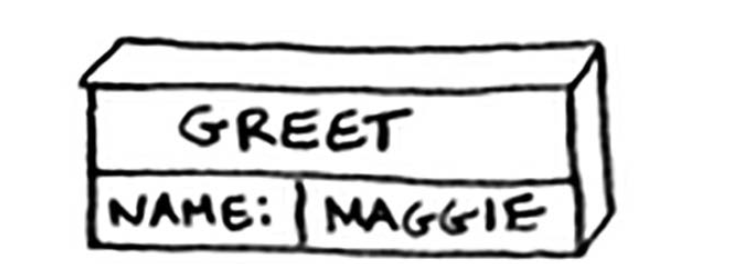 GREET
NAME: MAGGIE